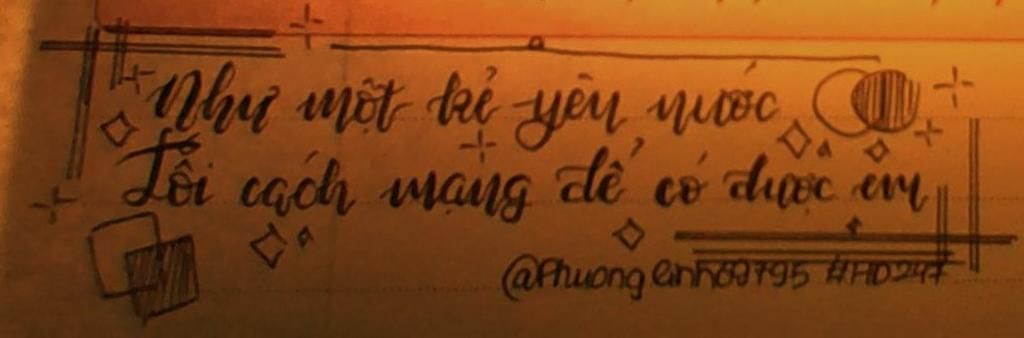 Như một kẻ yêu nước
Tôi cách mạng để có được em
@Phuonglinh69795 #HD247